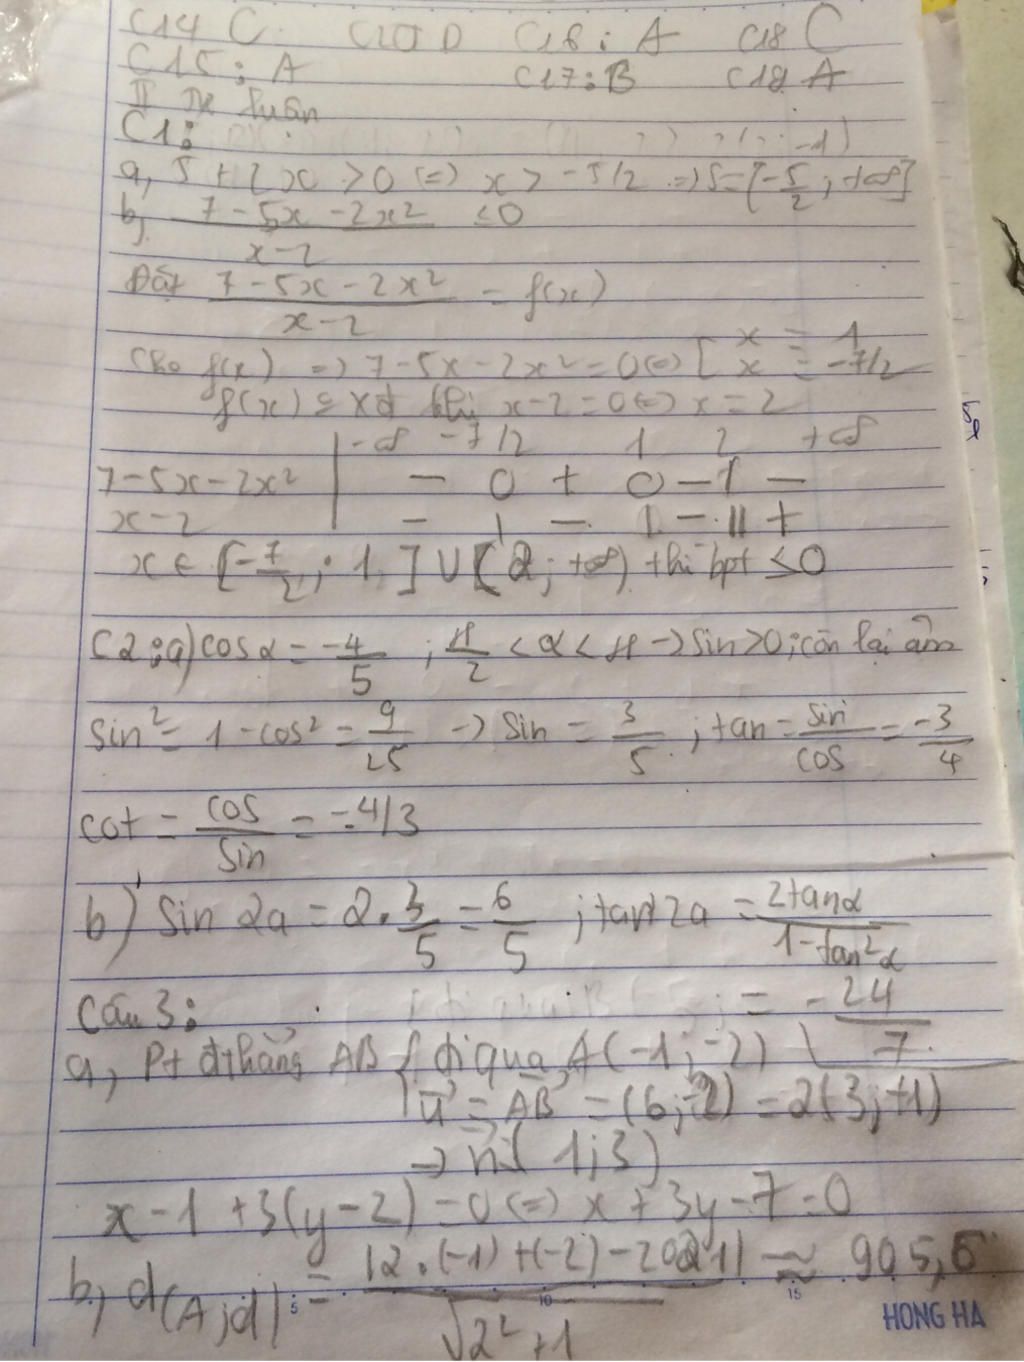 C14 C C20 D C16: A C18 C
C15: A C17: B C19 A
II Tự luận
C1:
a, 5 + 2x > 0 (=) x > -5/2 => S = [-5/2; +∞]
b, (7 - 5x - 2x²)/(x - 2) ≤ 0
Đặt (7 - 5x - 2x²)/(x - 2) = f(x)
Cho f(x) => 7 - 5x - 2x² = 0 (=) [ x = 1
x = -7/2
f(x) xđ khi x - 2 = 0 (=) x = 2
-∞ -7/2 1 2 +∞
7 - 5x - 2x² | - 0 + 0 - | -
x - 2 | - | - | - || +
x ∈ [-7/2; 1] U [2; +∞) thì bpt ≤ 0
C2: a) cosα = -4/5 ; π/2 < α < π -> sin > 0; còn lại âm
sin² = 1 - cos² = 9/25 -> sin = 3/5 ; tan = sin/cos = -3/4
cot = cos/sin = -4/3
b) sin 2a = 2.3/5 = 6/5 ; tan 2a = 2tanα/(1 - tan²α)
Câu 3: = -24/7
a, Pt đthẳng AB { đi qua A(-1; -2)
u = AB = (6; 2) = 2(3; +1)
-> n( 1; 3)
x - 1 + 3(y - 2) = 0 (=) x + 3y - 7 = 0
b, d(A; d) = |2.(-1) + (-2) - 2021|/√(2² + 1) ≈ 905,6
HONG HA